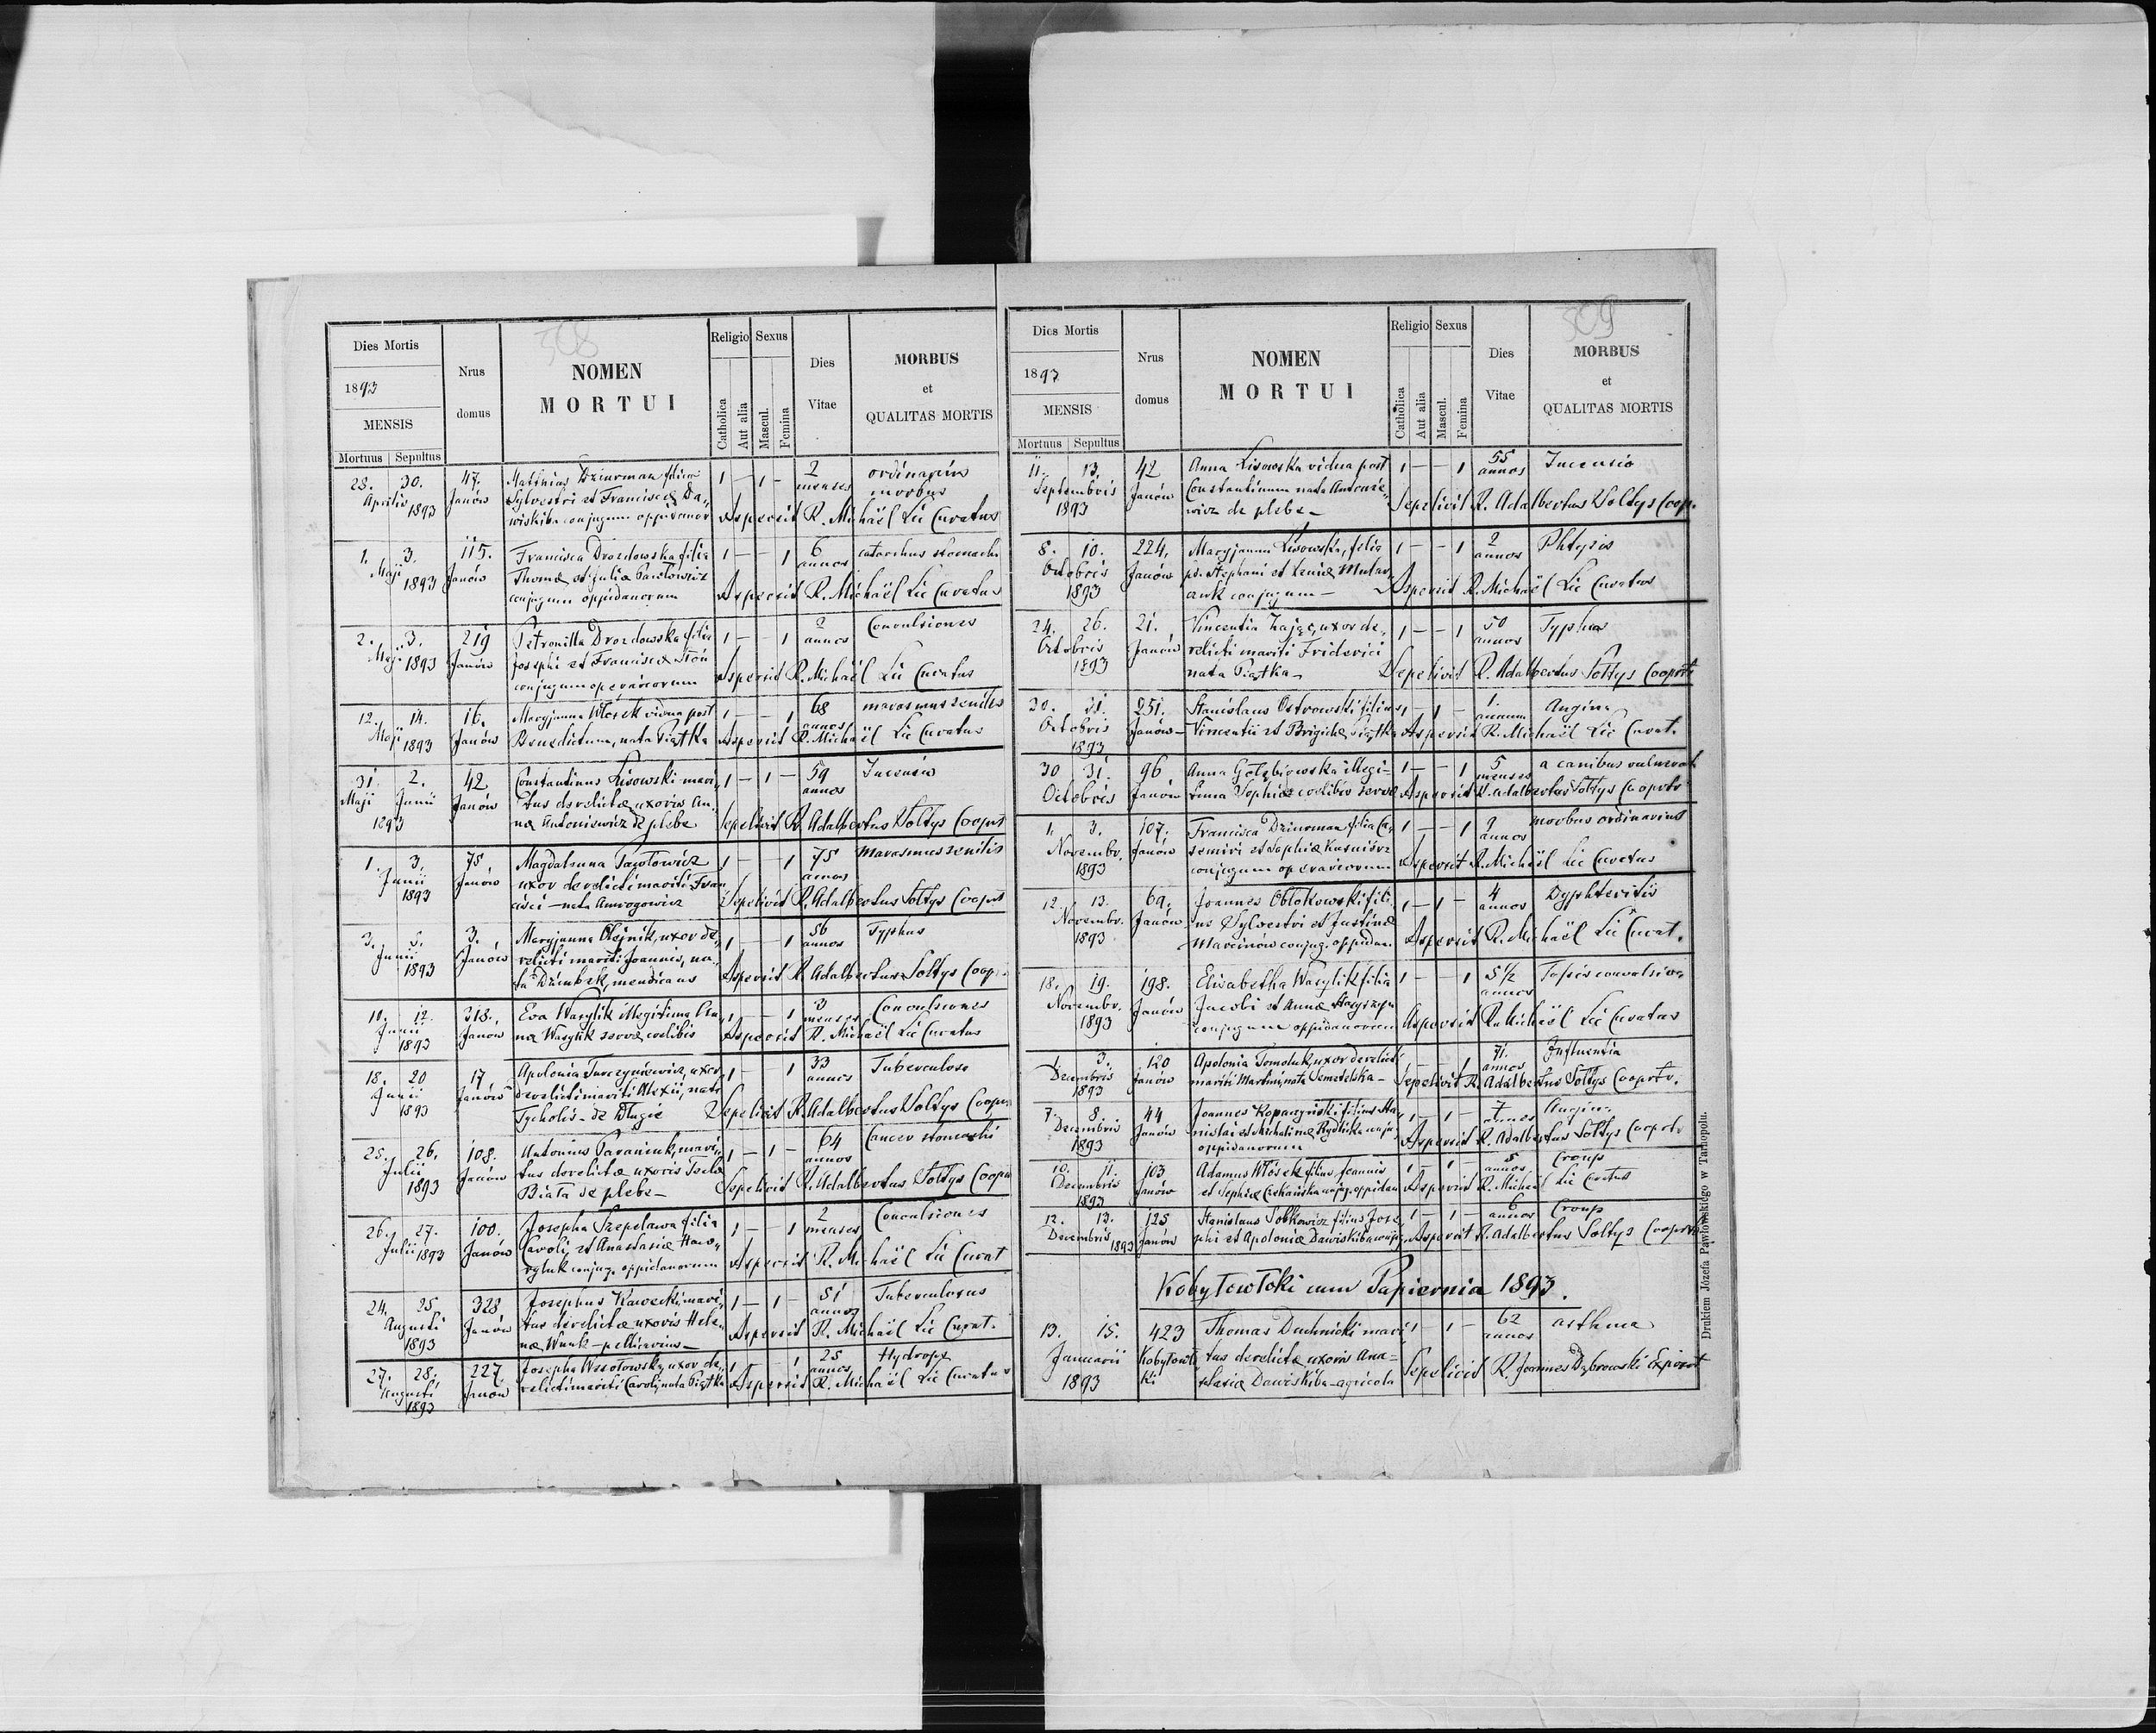 308
Dies Mortis
1893
MENSIS
Mortuus Sepultus
Nrus
domus
NOMEN
MORTUI
Religio Sexus
Catholica
Aut alia
Mascul.
Femina
Dies
Vitae
MORBUS
et
QUALITAS MORTIS
28. 30. 47. Matthias Dziurman filius 1 — 1 — 2 ordinarius
Aprilis Janów Sylvestri et Franciscæ Da„ menses morbus
1893 wiskiba conjugum oppidanor Aspersit R. Michaël Lic Curatus
1. 3. 115. Francisca Drozdowska filia 1 — — 1 6 catarrhus stomachi
Maji Janów Thomæ et Juliæ Pawłowicz annos
1893 conjugum oppidanorum Aspersit R. Michaël Lic Curatus
2. 3. 219 Petronilla Drozdowska filia 1 — — 1 2 Convulsiones
Maji 1893 Janów Josephi et Franciscæ annos
conjugum operariorum Aspersit R. Michaël Lic Curatus
12. 14. 16. Maryjanna Włosek vidua post 1 — — 1 68 marasmus senilis
Maji 1893 Janów Benedictum, nata Piątka annos Aspersit R. Michaël Lic Curatus
31. 2. 42 Constantinus Lisowski mari„ 1 — 1 — 59
Maji Junii Janów tus derelictæ uxoris An„ annos
1893 næ Antoniewicz de plebe Sepelivit R. Adalbertus Sołtys Cooprt
1. 3. 75. Magdalenna 1 — — 1 75 Marasmus senilis
Junii Janów uxor derelicti mariti Fran annos
1893 cisci — nata Amrogowicz Sepelivit R. Adalbertus Sołtys Cooprt
3. 5. 3. Maryjanna Olejnik, uxor de„ 1 — — 1 56 Typhus
Junii Janów relicti mariti Joannis, na„ annos
1893 ta mendicans Aspersit R. Adalbertus Sołtys Coop.
12. 318. Eva Wasylik illegitima An 1 — — 1 3 Convulsiones
Junii Janów næ Wasylik servæ cœlibis menses
1893 Aspersit R. Michaël Lic Curatus
18. 20 17 Apolonia Turczyniewicz, uxor 1 — — 1 33 Tuberculose
Junii Janów derelicti mariti Alexii, nata annos
1893 Tycholis — de Sepelivit R. Adalbertus Sołtys Coopr.
25. 26. 108. Antonius Paraniuk, mari„ 1 — 1 — 64 Cancer stomachi
Julii Janów tus derelictæ uxoris Teclæ annos
1893 Biała de plebe — Sepelivit R. Adalbertus Sołtys Coopr
26. 27. 100. Josepha Szepelawa filia 1 — — 1 2 Convulsiones
Julii 1893 Janów Caroli et Anastasiæ Haw„ menses
ryluk conjug. oppidanorum Aspersit R. Michaël Lic Curat
24. 25 328. Josephus Kawecki, mari„ 1 — 1 — 51 Tuberculosus
Augusti Janów tus derelictæ uxoris Hele„ annos
1893 næ Wnuk — pelliarius — Aspersit R. Michaël Lic Curat.
27. 28. 227. Josepha Wesołowska, uxor de„ 1 — — 1 25 Hydrops
Augusti Janów relicti mariti Caroli, nata Piątka annos
1893 Aspersit R. Michaël Lic Curatus
309
Dies Mortis
1893
MENSIS
Mortuus Sepultus
Nrus
domus
NOMEN
MORTUI
Religio Sexus
Catholica
Aut alia
Mascul.
Femina
Dies
Vitae
MORBUS
et
QUALITAS MORTIS
11. 13. 42 Anna Lisowska vidua post 1 — — 1 55
Septembris Janów Constantinum nata Antonie„ annos
1893 wicz de plebe — Sepelivit R. Adalbertus Sołtys Coop.
8. 10. 224. Maryjanna Lisowska, filia 1 — — 1 2 Phtysis
Octobris Janów pd. Stephani et Xeniæ annos
1893 conjugum — Aspersit R. Michaël Lic Curatus
24. 26. 21. Vincentia Zając, uxor de„ 1 — — 1 50 Typhus
Octobris Janów relicti mariti Friderici annos
1893 nata Piątka — Sepelivit R. Adalbertus Sołtys Cooprt
30. 31. 251. Stanislaus Ostrowski filius 1 — 1 — 1. Angina
Octobris Janów — Vincentii et Brigidæ Piątka annum
1893 Aspersit R. Michaël Lic Curat.
30 31. 96 Anna Gołębiowska illegi= 1 — — 1 5 a canibus vulnerat
Octobris Janów tima Sophiæ cœlibis servæ menses Aspersit R. Adalbertus Sołtys Cooprtr
1. 3. 107. Francisca Dziurman filia Ca„ 1 — — 1 2 morbus ordinarius
Novembr. Janów simiri et Sophiæ Kusnierz annos
1893 conjugum operariorum Aspersit R. Michaël Lic Curatus
12. 13. 69. Joannes Obłokowski fili„ 1 — 1 — 4 Dyphteritis
Novembr. Janów us Sylvestri et Justinæ annos
1893 Marcinów conjug. oppidan. Aspersit R. Michaël Lic Curat.
18. 19. 198. Elisabetha Wasylik filia 1 — — 1 5 1/2
Novembr. Janów Jacobi et Annæ annos
1893 conjugum oppidanorum Aspersit R. Michaël Lic Curatus
1 3. 120 Apolonia Tomoluk, uxor derelicti 1 — — 1 71. Influentia
Decembris Janów mariti Martini, nata Semetelska — annos
1893 Sepelivit R. Adalbertus Sołtys Cooprtr.
7. 8. 44 Joannes Kopaczyński filius Sta„ 1 — 1 — 7 Angina
Decembris Janów nislai et Michalinæ conju„ annos
1893 oppidanorum Aspersit R. Adalbertus Sołtys Cooprtr
10. 11. 103 Adamus Włósek filius Joannis 1 — 1 — 5 Croup
Decembris Janów et Sophiæ Ciechańska conjug. oppidan annos
1893 Aspersit R. Michaël Lic Curatus
12. 13. 125 Stanislaus Sobkowicz filius Jose„ 1 — 1 — 6 Croup
Decembris Janów phi et Apoloniæ Dawiskiba conju. annos
1893 Aspersit R. Adalbertus Sołtys Cooprtr
Kobyłowłoki cum Papiernia 1893.
13. 15. 423 Thomas Duchnicki mari„ 1 — 1 — 62 asthma
Januarii Kobyłowło tus derelictæ uxoris Ana= annos
1893 ki stasiæ Dawiskiba — agricola Sepelivit R. Joannes Dąbrowski Exposit
Drukiem Józefa Pawłowskiego w Tarnopolu.